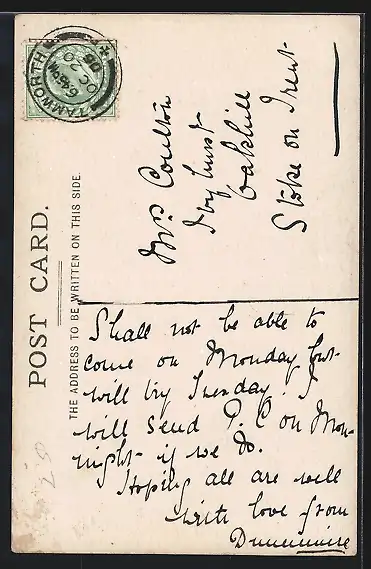 POST CARD.
THE ADDRESS TO BE WRITTEN ON THIS SIDE.
TAMWORTH
6.45 PM
OC 20
05
Mrs Coulton
Ivyhurst
Oakhill
Stoke on Trent
Shall not be able to
come on Monday but
will try Tuesday. I
will send P. C on Mon-
night if we do.
Hoping all are well
with love from